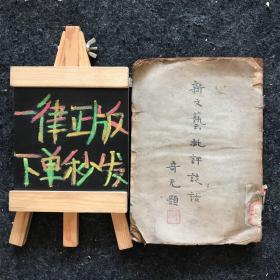 一律正版
下单秒发
新文藝批評談話
奇无題